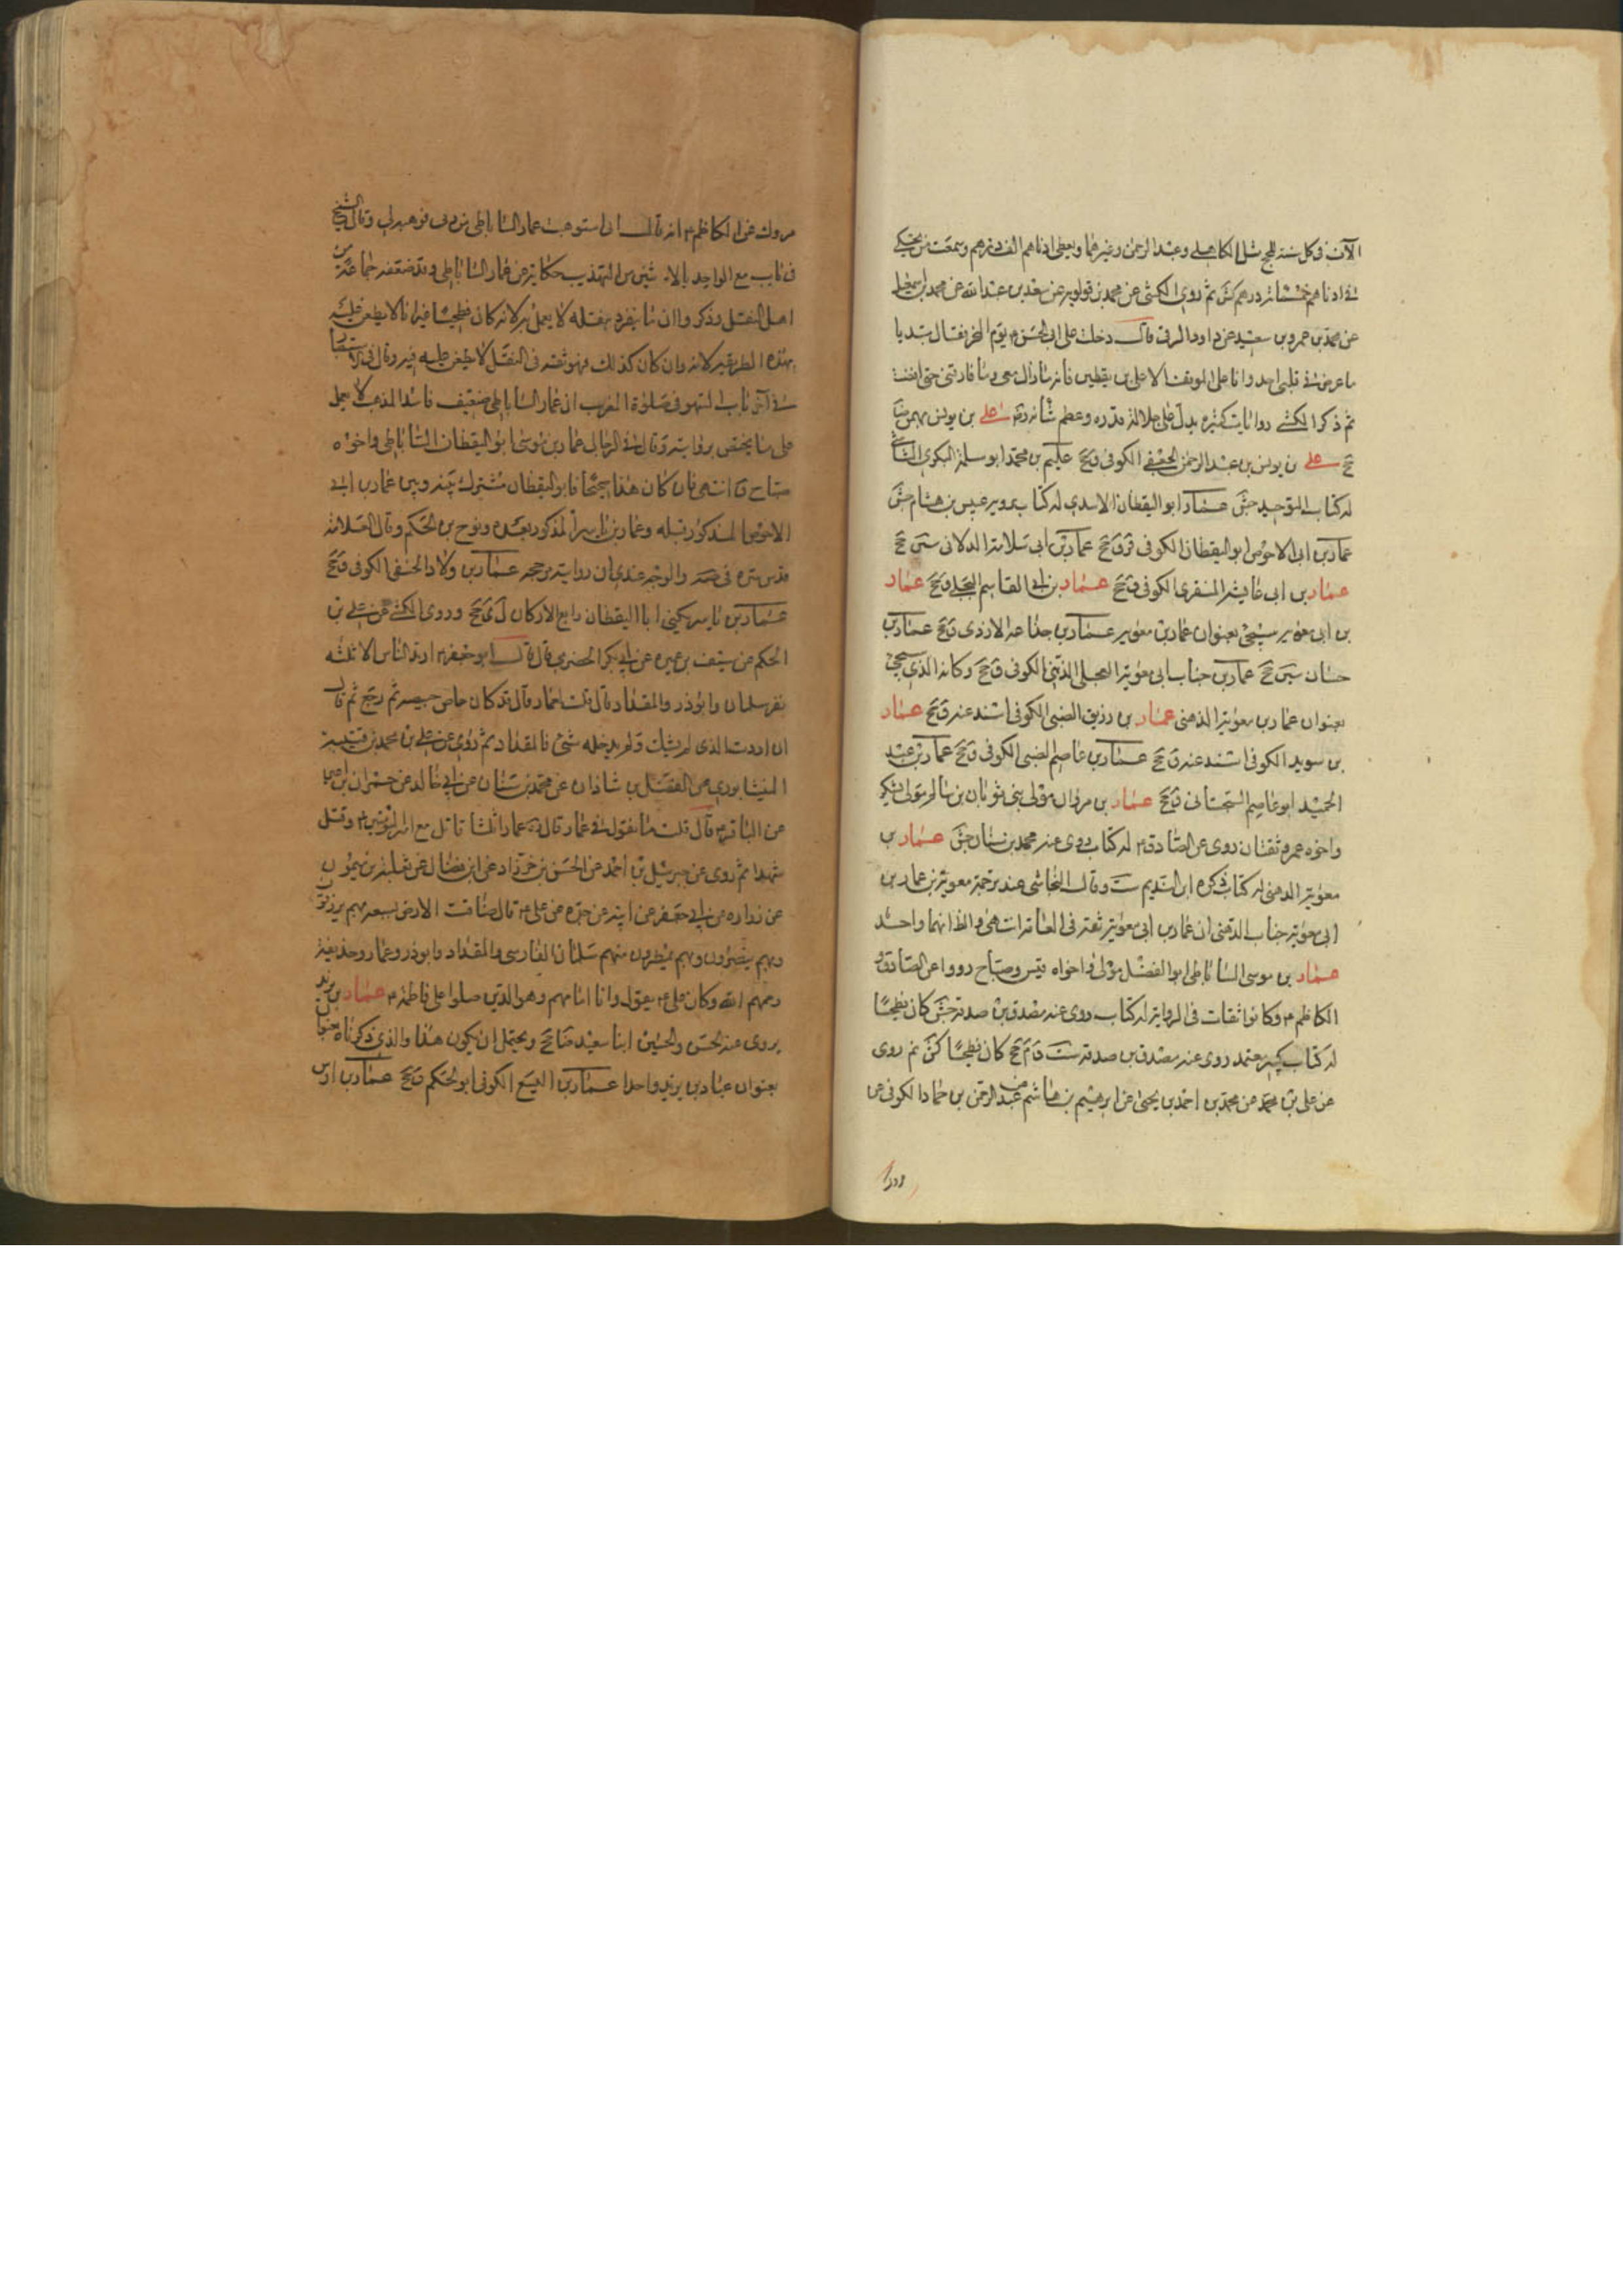 الآف فی كل سنة للحج مثل الكاهلی وعبد الرحمن وغیرهما ویعطی ادناهم الف درهم وسمعت من یحكی
فی ادناهم خمسمائة درهم كش ثم روی الكشی عن محمد بن قولویه عن سعد بن عبد الله عن محمد بن اسمعیل
عن محمد بن عمرو بن سعید عن داود الرقی قال دخلت علی ابی الحسن ع یوم النحر فقال مبتدیا
ما عرض فی قلبی احد وانا علی الموقف الا علی بن یقطین فانه ما زال معی وما فارقنی حتی افضت
ثم ذكر الكشی روایات كثیرة یدل علی جلالة قدره وعظم شأنه علی بن یونس بن بهمن ضا
جخ علی بن یونس بن عبد الرحمن الجعفی الكوفی ق جخ علیم بن محمد ابو سلمة البكری الشاشی
له كتاب التوحید جش عمار ابو الیقظان الاسدی له كتاب یرویه عبیس بن هشام جش
عمار بن ابی الاحوص ابو الیقظان الكوفی قر ق جخ عمار بن ابی سلامة الدلانی سین جخ
عمار بن ابی عایشة المنقری الكوفی ق جخ عمار بن ابی القاسم البجلی ق جخ عمار
بن ابی معویة سیجئ بعنوان عمار بن معویة عمار بن جذاعة الازدی ق جخ عمار بن
حسان سین جخ عمار بن جناب ابی معویة العجلی الدهنی الكوفی ق جخ وكانه الذی سیجئ
بعنوان عمار بن معویة الدهنی عمار بن رزیق الضبی الكوفی اسند عنه ق جخ عمار
بن سوید الكوفی اسند عنه ق جخ عمار بن عاصم الضبی الكوفی ق جخ عمار بن عبد
الحمید ابو عاصم السجستانی ق جخ عمار بن مروان مولی بنی ثوبان بن سالم مولی یشكر
واخوه عمرو ثقتان روی عن الصادق ع له كتاب روی عنه محمد بن سنان جش عمار بن
معویة الدهنی له كتاب ذكره ابن الندیم ست وقال النجاشی عند ترجمة معویة بن عمار بن
ابی معویة جناب الدهنی ان عمار بن ابی معویة ثقة فی العامة انتهی والظ انهما واحد
عمار بن موسی الساباطی ابو الفضل مولی واخواه قیس وصباح رووا عن الصادق و
الكاظم ع وكانوا ثقات فی الروایة له كتاب روی عنه مصدق بن صدقة جش كان فطحیا
له كتاب كبیر معتمد روی عنه مصدق بن صدقة ست ق م جخ كان فطحیا كش ثم روی
عن علی بن محمد عن محمد بن احمد بن یحیی عن ابرهیم بن هاشم عن عبد الرحمن بن حماد الكوفی عن
مروك
مروك عن الكاظم ع انه قال انی استوهبت عمار الساباطی من ربی فوهبه لی وقال الشیخ
فی باب بیع الواحد بالاثنین من التهذیب حكایة عن عمار الساباطی وقد ضعفه جماعة من
اهل النقل وذكروا ان ما ینفرد بنقله لا یعمل به لانه كان فطحیا غیر انا لا نطعن علیه
بهذه الطریقة لانه وان كان كذلك فهو ثقة فی النقل لا یطعن علیه فیه وقال فی الاستبصار
فی آخر باب السهو فی صلوة المغرب ان عمار الساباطی ضعیف فاسد المذهب لا یعمل
علی ما یختص بروایته وقال فی الرجال عمار بن موسی ابو الیقظان الساباطی واخوه
صباح ق انتهی فان كان هذا صحیحا فابو الیقظان مشترك بینه وبین عمار بن ابی
الاحوص المذكور قبله وعمار بن یاسر المذكور بعده ونوح بن الحكم وقال العلامة
قدس سره فی صه والوجه عندی ان روایته مرجحة عمار بن ولاد الحنفی الكوفی ق جخ
عمار بن یاسر یكنی ابا الیقظان رابع الاركان ل ی جخ وروی الكشی عن علی بن
الحكم عن سیف بن عمیرة عن ابی بكر الحضرمی قال قال ابو جعفر ع ارتد الناس الا ثلثة
نفر سلمان وابوذر والمقداد قال قلت فعمار قال قد كان جاض جیضة ثم رجع ثم قال
ان اردت الذی لم یشك ولم یدخله شئ فالمقداد ثم روی عن علی بن محمد بن قتیبة
النیشابوری عن الفضل بن شاذان عن محمد بن سنان عن ابی خالد عن حمران بن اعین
عن الباقر ع قال قلت ما تقول فی عمار قال رحم الله عمارا ثلثا قاتل مع امیر المؤمنین ع وقتل
شهیدا ثم روی عن جبرئیل بن احمد عن الحسن بن خرزاد عن ابن فضال عن ثعلبة بن میمون
عن زرارة عن ابی جعفر عن ابیه عن جده عن علی ع قال ضاقت الارض بسبعة بهم یرزقون
وبهم ینصرون وبهم یمطرون منهم سلمان الفارسی والمقداد وابوذر وعمار وحذیفة
رحمهم الله وكان علی ع یقول وانا امامهم وهم الذین صلوا علی فاطمة ع عمار بن یزید
یروی عنه الحسن والحسین ابنا سعید ضا جخ ویحتمل ان یكون هذا والذی ذكرناه
بعنوان عباد بن یزید واحدا عمار بن الیسع الكوفی ابو الحكم ق جخ عمار بن